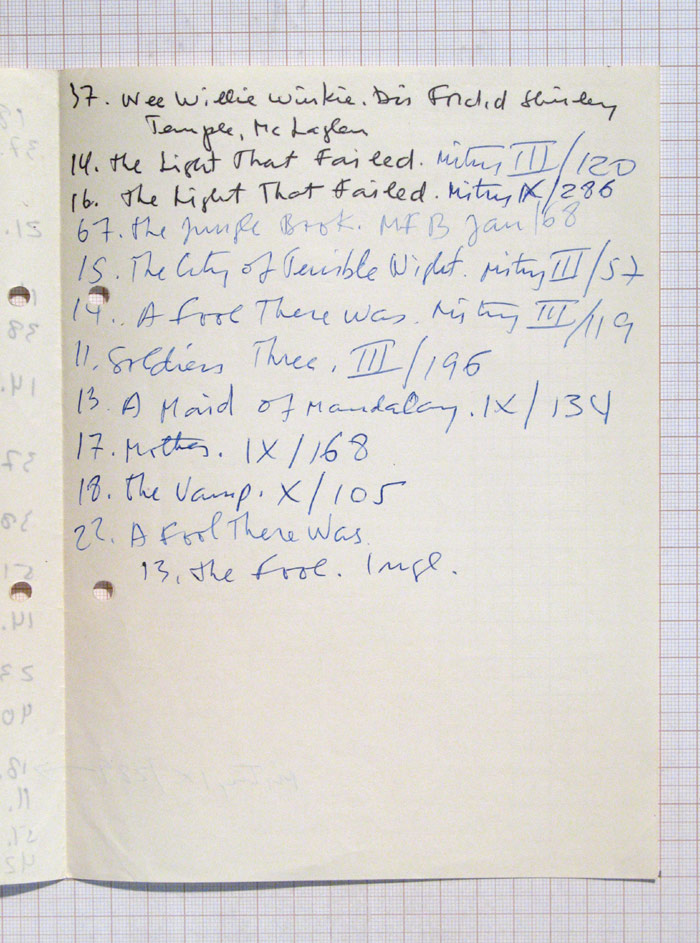 37. Wee Willie Winkie. Dir Ford d Shirley
Temple, McLaglen
14. The Light That Failed. Mitry III/120
16. The Light That Failed. Mitry IX/286
67. The Jungle Book. MFB Jan/68
15. The City of Terrible Night. Mitry III/57
14. A Fool There Was. Mitry III/119
11. Soldiers Three. III/196
13. A Maid of Mandalay. IX/134
17. Mother. IX/168
18. The Vamp. X/105
22. A Fool There Was.
13. The Fool. Ingl.